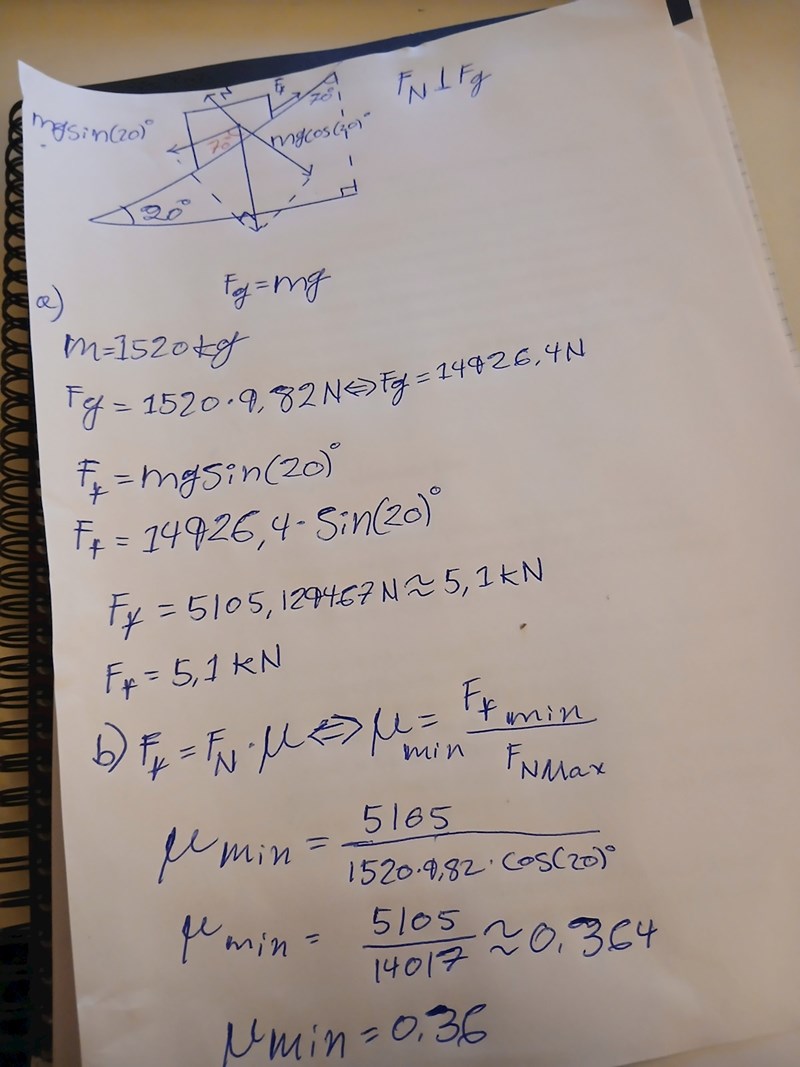 F_N ⊥ F_g
N
F_f
70°
mgsin(20)°
70°
mgcos(20)°
20°
F_g = mg
a)
m=1520kg
F_g = 1520·9,82N ⇔ F_g = 14926,4N
F_f = mgsin(20)°
F_f = 14926,4· sin(20)°
F_f = 5105,129467N ≈ 5,1kN
F_f = 5,1 kN
b) F_f = F_N · μ ⇔ μ_min = F_f min / F_N Max
μ_min = 5105 / 1520·9,82·cos(20)°
μ_min = 5105 / 14017 ≈ 0.364
μ_min = 0.36